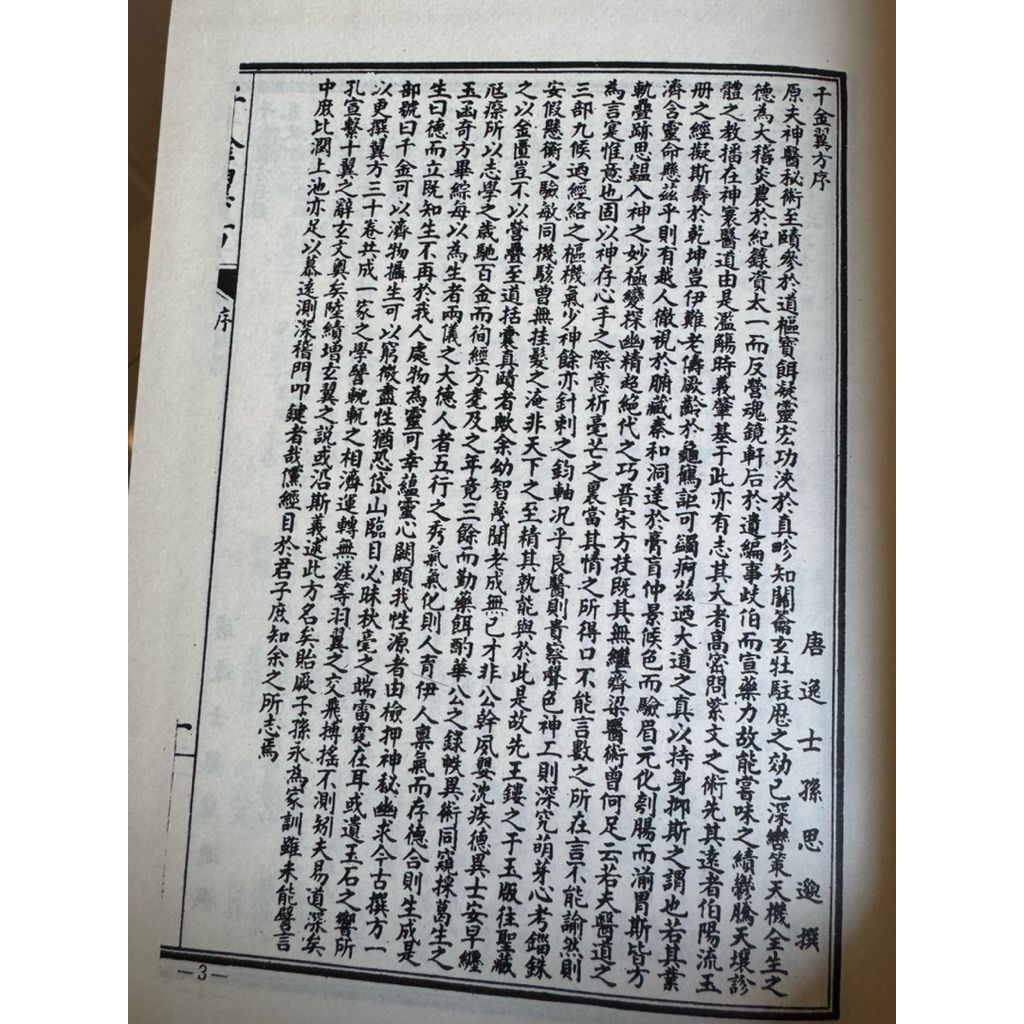 千金翼方序
唐逸士孫思邈撰
原夫神醫秘術至賾參於道樞寶餌凝靈宏功浹於真畛知關籥玄牡駐歷之効已深轡策天機全生之
德為大稽炎農於紀錄資太一而反營魂鏡軒后於遺編事歧伯而宣藥力故能嘗味之績欝騰天壤診
體之教播在神寰醫道由是濫觴時義肇基于此亦有志其大者高密問紫文之術先其遠者伯陽流玉
册之經擬斯壽於乾坤豈伊難老儔厥齡於龜鶴詎可蠲痾茲迺大道之真以持身抑斯之謂也若其葉
濟含靈命懸茲乎則有越人徹視於腑藏秦和洞達於膏肓仲景候色而驗眉元化刳腸而湔胃斯皆方
軌疊跡思韞入神之妙極變探幽精超絕代之巧晉宋方技既其無繼齊梁醫術曾何足云若夫醫道之
為言寔惟意也固以神存心手之際意析毫芒之裏當其情之所得口不能言數之所在言不能諭然則
三部九候迺經絡之樞機氣少神餘亦針刺之鈞軸况乎良醫則貴察聲色神工則深究萌芽心考錙銖
安假懸衡之驗敏同機駭曾無挂髮之淹非天下之至精其孰能與於此是故先王鏤之于玉版往聖藏
之以金匱豈不以營疊至道括囊真賾者歟余幼智蔑聞老成無已才非公幹夙嬰沈疾德異士安早纏
尫瘵所以志學之歲馳百金而徇經方耄及之年竟三餘而勤藥餌酌華公之錄帙異術同窺採葛生之
玉函奇方畢綜每以為生者兩儀之大德人者五行之秀氣氣化則人育伊人稟氣而存德合則生成是
生曰德而立既知生不再於我人處物為靈可幸蘊靈心闕頤我性源者由檢押神秘幽求今古撰方一
部號曰千金可以濟物攝生可以窮微盡性猶恐岱山臨目必昧秋毫之端雷霆在耳或遺玉石之響所
以更撰翼方三十卷共成一家之學譬輗軏之相濟運轉無涯等羽翼之交飛摶搖不測矧夫易道深矣
孔宣繫十翼之辭玄文奧矣陸績增玄翼之說或沿斯義述此方名矣貽厥子孫永為家訓雖未能譬言
中庶比潤上池亦足以慕遠測深稽門叩鍵者哉儻經目於君子庶知余之所志焉
序
一
—3—